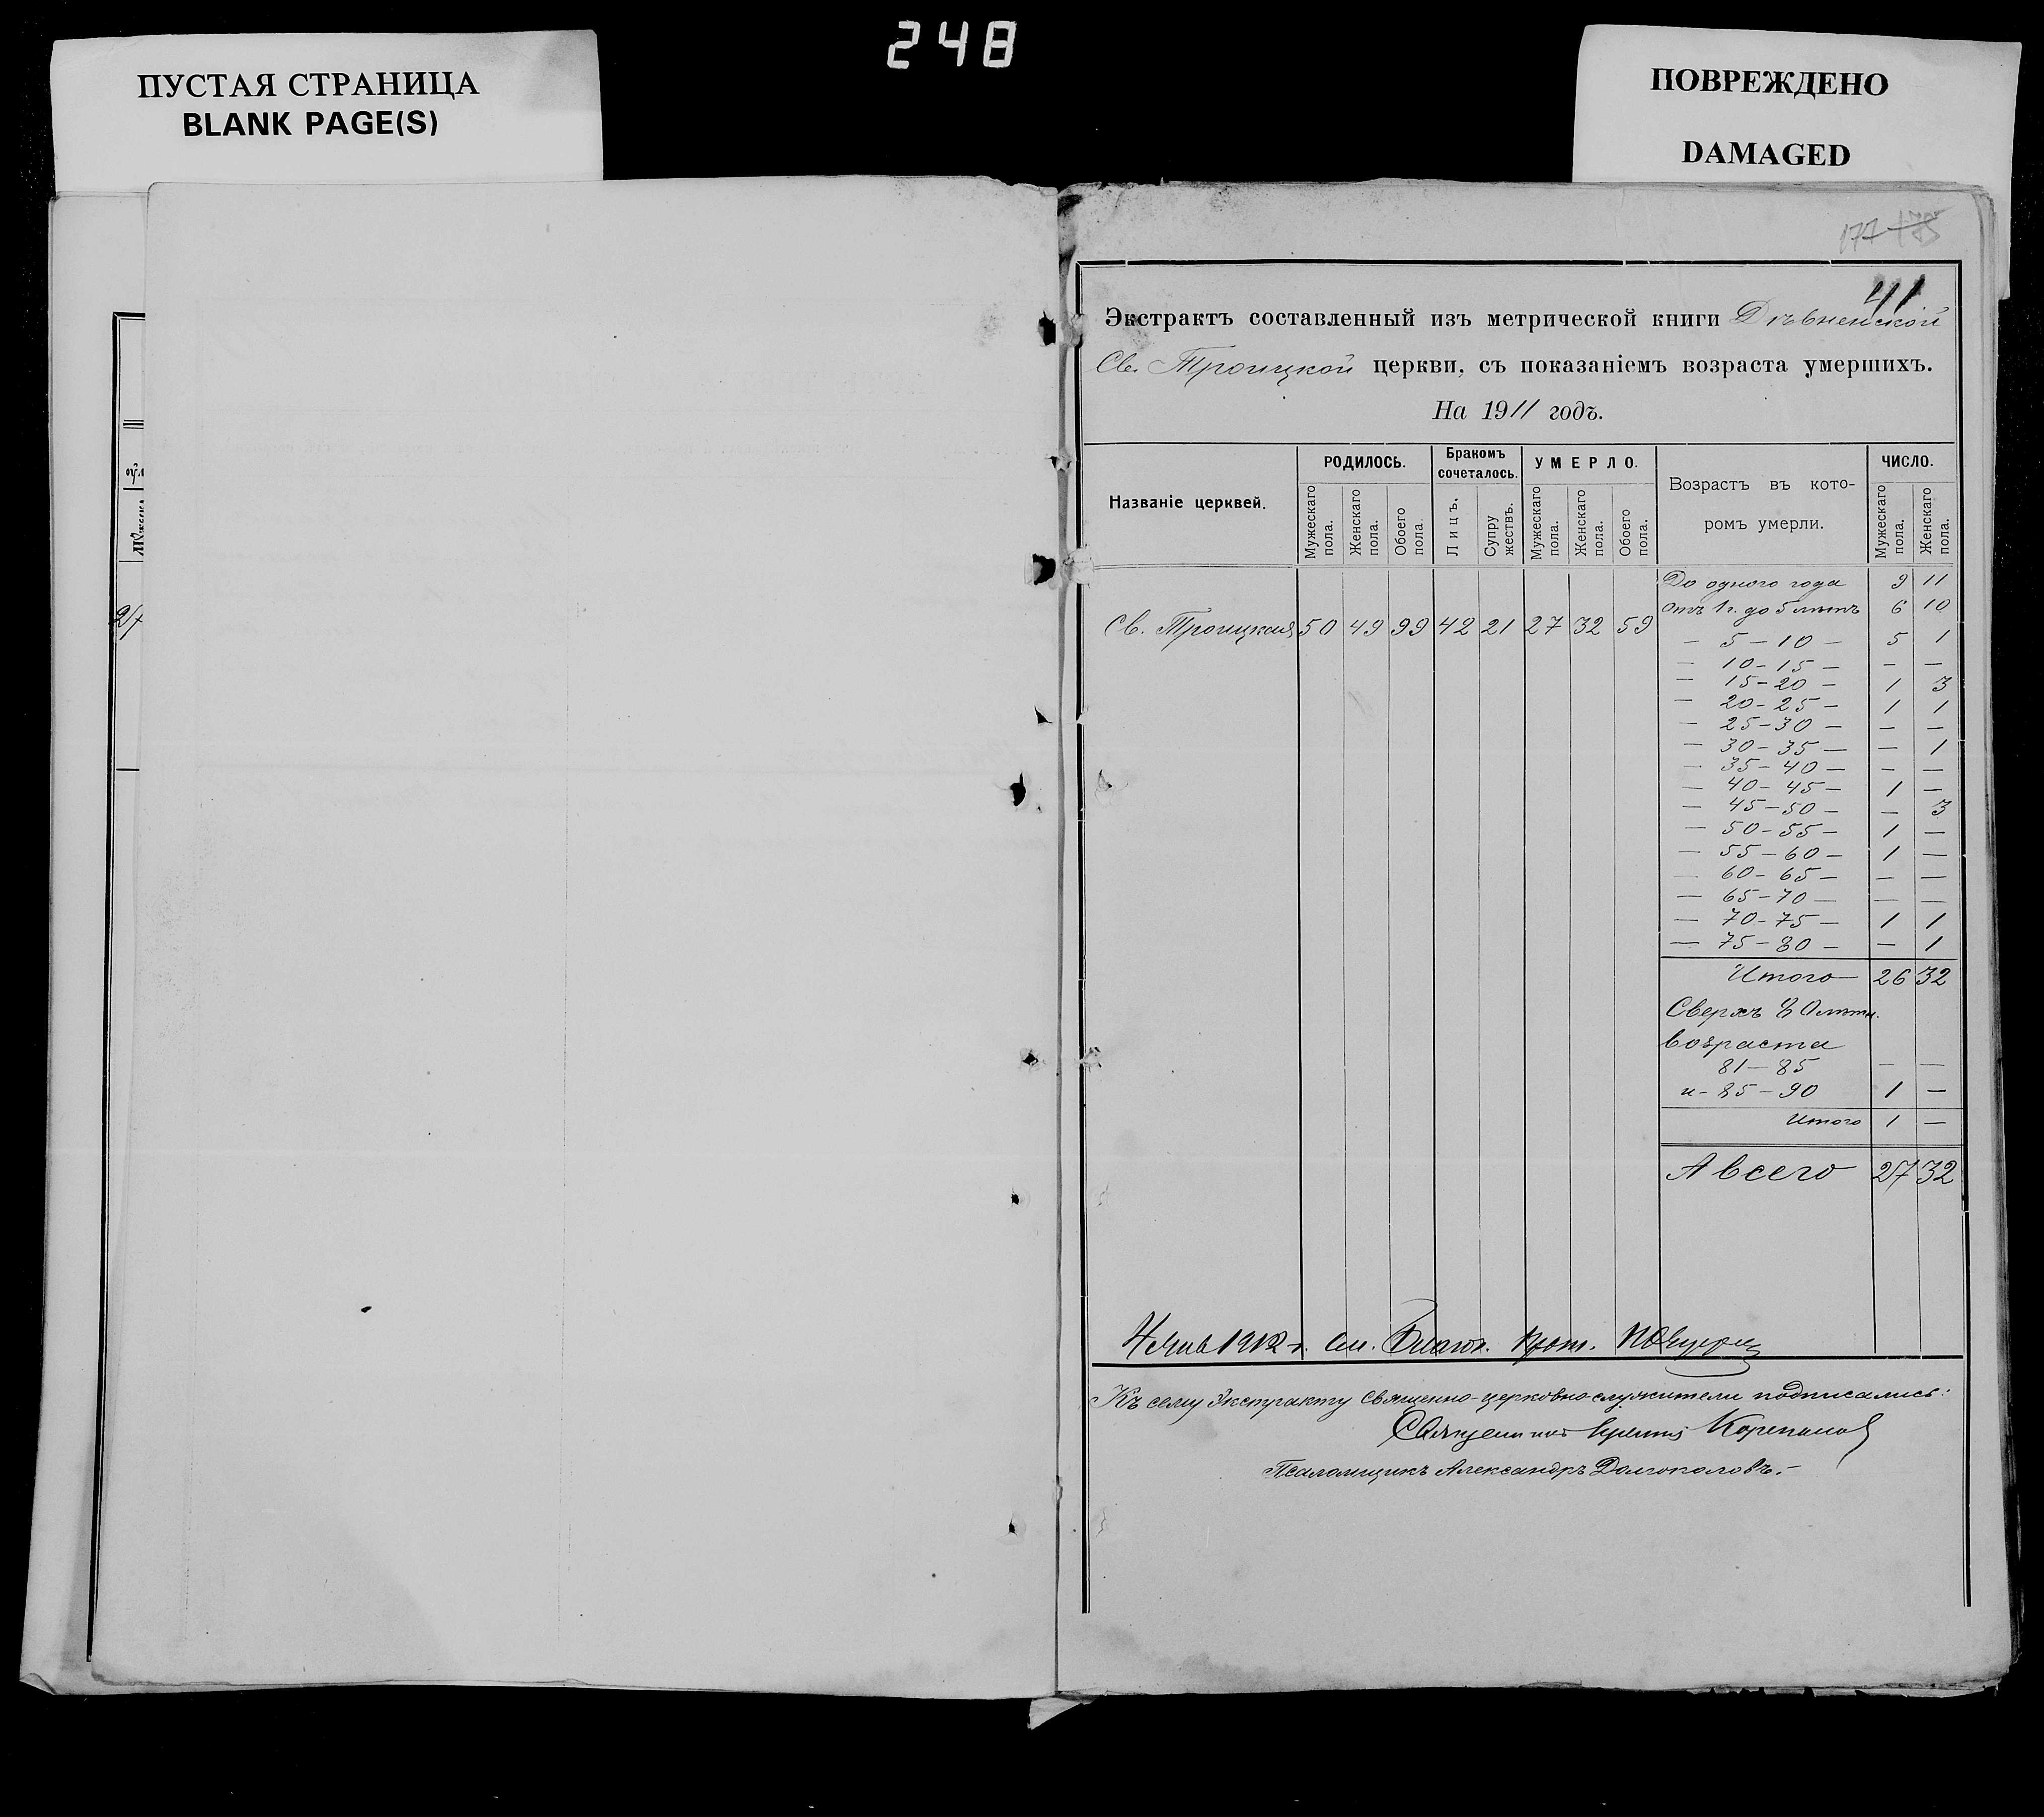 248
ПУСТАЯ СТРАНИЦА
BLANK PAGE(S)
ПОВРЕЖДЕНО
DAMAGED
177 175
41
Экстрактъ составленный изъ метрической книги
Св. Троицкой церкви, съ показаніемъ возраста умершихъ.
На 1911 годъ.
Названіе церквей. РОДИЛОСЬ. Бракомъ сочеталось. УМЕРЛО. Возрастъ въ которомъ умерли. ЧИСЛО.
Мужескаго пола. Женскаго пола. Обоего пола Лицъ. Супружествъ. Мужескаго пола. Женскаго пола. Обоего пола. Мужескаго пола. Женскаго пола.
До одного года 9 11
Отъ 1 г. до 5 лѣтъ 6 10
Св. Троицкая 50 49 99 42 21 27 32 59
— 5 — 10 — 5 1
— 10 — 15 — — —
— 15 — 20 — 1 3
— 20 — 25 — 1 1
— 25 — 30 — — —
— 30 — 35 — — 1
— 35 — 40 — — —
— 40 — 45 — 1 —
— 45 — 50 — — 3
— 50 — 55 — 1 —
— 55 — 60 — 1 —
— 60 — 65 — — —
— 65 — 70 — — —
— 70 — 75 — 1 1
— 75 — 80 — — 1
Итого — 26 32
Сверхъ 80 лѣтн.
возраста
81 — 85 — —
и - 85 — 90 1 —
Итого 1 —
А всего 27 32
4 Янв 1912 г. См. Благоч. Прот.
Къ сему Экстракту Священно-церковно-служители подписались:
Священникъ Корепановъ
Псаломщикъ Александръ Долгополовъ. —
27